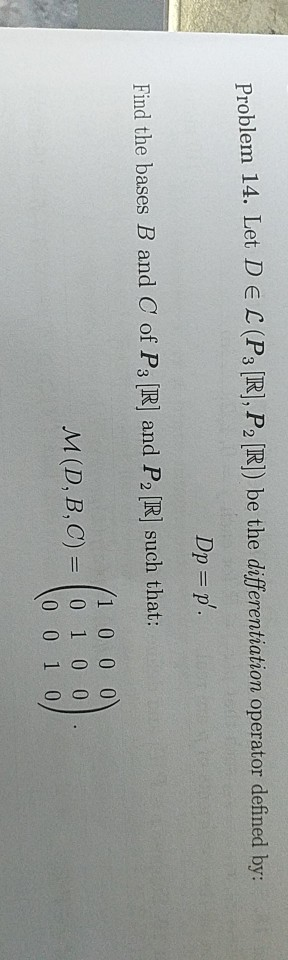 Problem 14. Let D ∈ ℒ(P₃[ℝ], P₂[ℝ]) be the differentiation operator defined by:
Dp = p′.
Find the bases B and C of P₃[ℝ] and P₂[ℝ] such that:
ℳ(D, B, C) = ( 1 0 0 0
0 1 0 0
0 0 1 0 ).